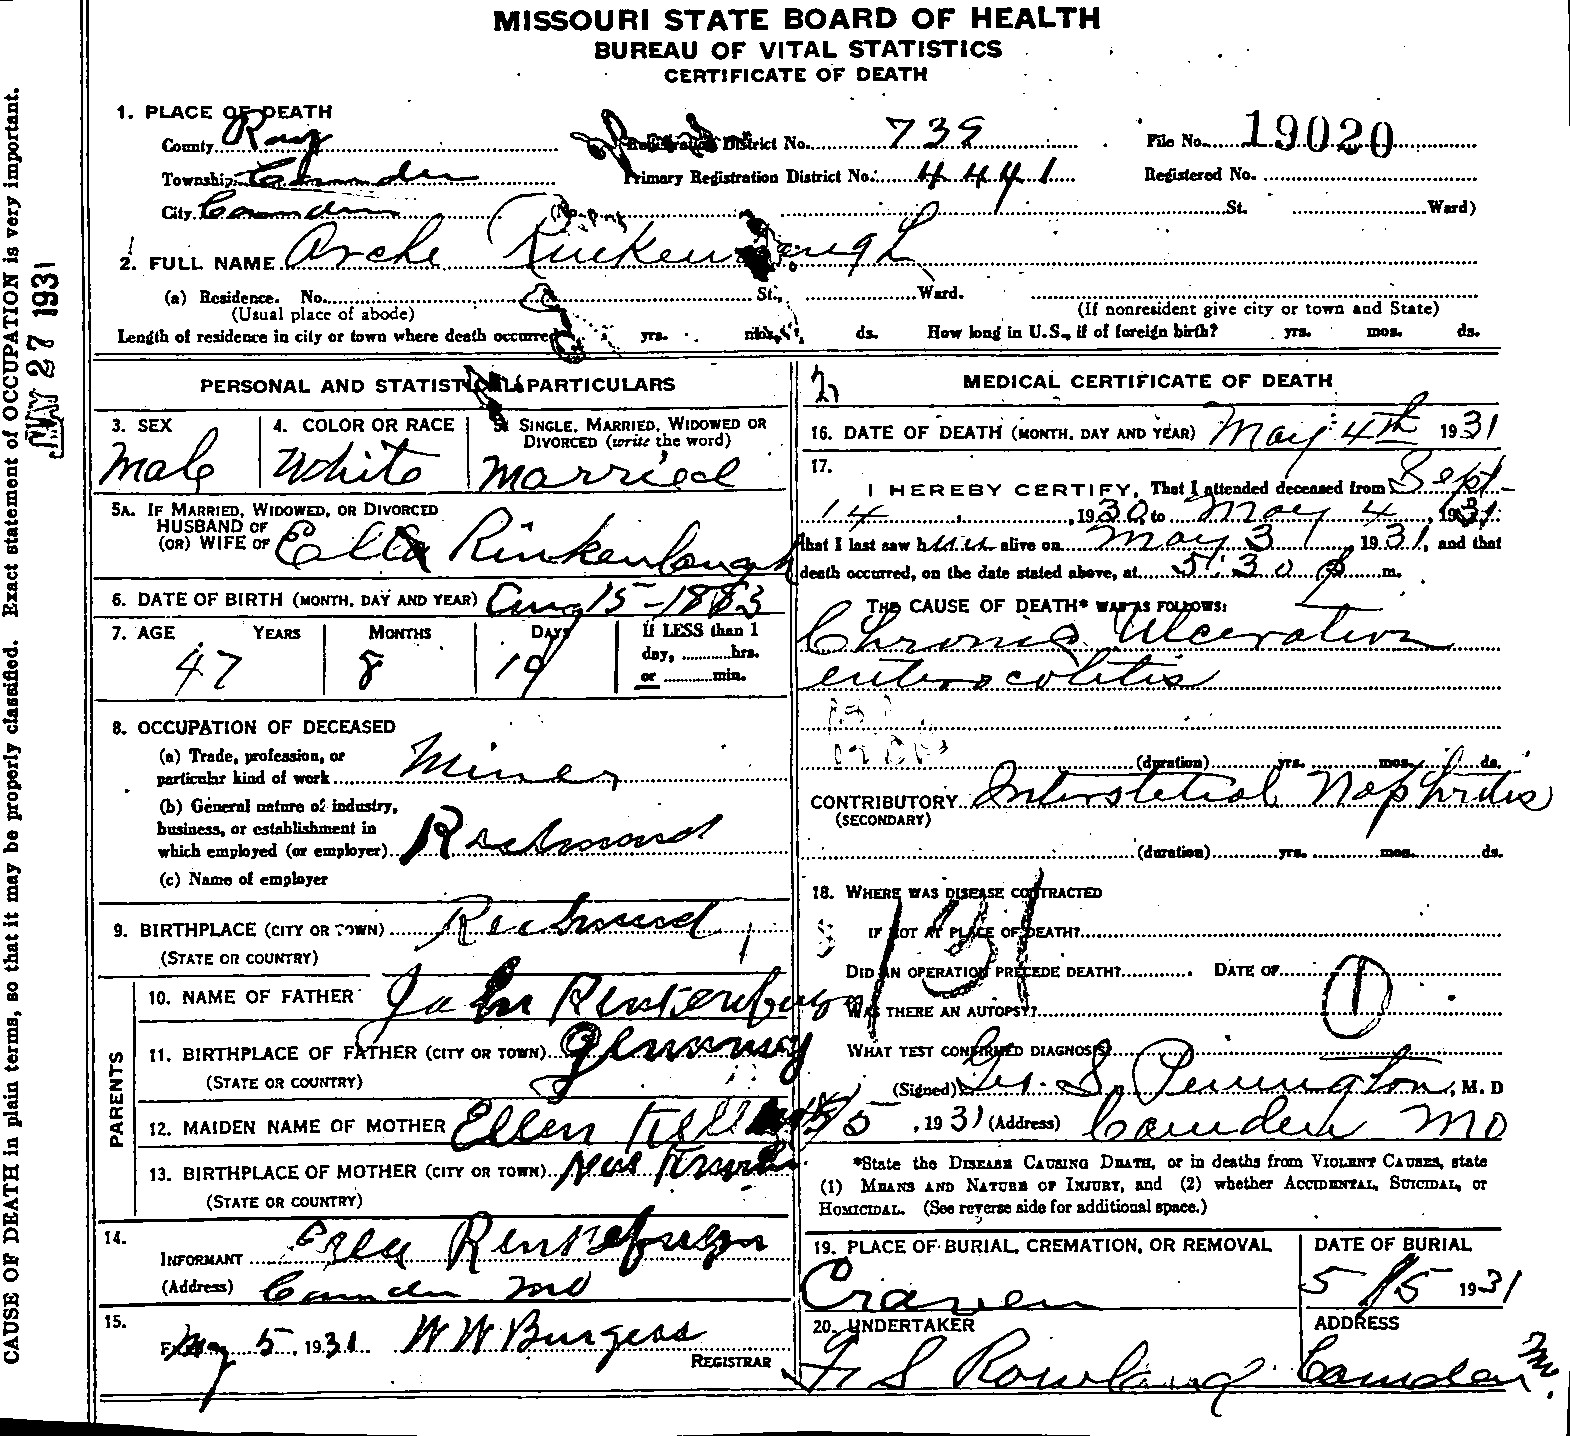 MISSOURI STATE BOARD OF HEALTH
BUREAU OF VITAL STATISTICS
CERTIFICATE OF DEATH
1. PLACE OF DEATH
County Ray Registration District No. 739 File No. 19020
Township Camden Primary Registration District No. 4441 Registered No.
City Camden (No. St. Ward)
2. FULL NAME Arche Rinkenbaugh
(a) Residence. No. St., Ward.
(Usual place of abode) (If nonresident give city or town and State)
Length of residence in city or town where death occurred yrs. mos. ds. How long in U.S., if of foreign birth? yrs. mos. ds.
PERSONAL AND STATISTICAL PARTICULARS
3. SEX 4. COLOR OR RACE 5. SINGLE, MARRIED, WIDOWED OR
DIVORCED (write the word)
Male White Married
5A. IF MARRIED, WIDOWED, OR DIVORCED
HUSBAND OF
(OR) WIFE OF Ella Rinkenbaugh
6. DATE OF BIRTH (MONTH, DAY AND YEAR) Aug 15-1883
7. AGE YEARS MONTHS DAYS If LESS than 1
day, hrs.
or min.
47 8 19
8. OCCUPATION OF DECEASED
(a) Trade, profession, or
particular kind of work Miner
(b) General nature of industry,
business, or establishment in
which employed (or employer) Richmond
(c) Name of employer
9. BIRTHPLACE (CITY OR TOWN) Richmond
(STATE OR COUNTRY)
PARENTS
10. NAME OF FATHER John
11. BIRTHPLACE OF FATHER (CITY OR TOWN) Germany
(STATE OR COUNTRY)
12. MAIDEN NAME OF MOTHER Ellen
13. BIRTHPLACE OF MOTHER (CITY OR TOWN) Not Known
(STATE OR COUNTRY)
14.
INFORMANT Ella
(Address) Camden Mo
15.
May 5, 1931 W W Burgess
REGISTRAR
MEDICAL CERTIFICATE OF DEATH
16. DATE OF DEATH (MONTH, DAY AND YEAR) May 4th 1931
17.
I HEREBY CERTIFY, That I attended deceased from Sept
14, 1930, to May 4, 1931
that I last saw him alive on May 3, 1931, and that
death occurred, on the date stated above, at 5:30 P m.
THE CAUSE OF DEATH* WAS AS FOLLOWS:
Chronic Ulceration
enterocolitis
(duration) yrs. mos. ds.
CONTRIBUTORY Interstetial Nephritis
(SECONDARY)
(duration) yrs. mos. ds.
18. WHERE WAS DISEASE CONTRACTED
IF NOT AT PLACE OF DEATH?
131
DID AN OPERATION PRECEDE DEATH? DATE OF
1
WAS THERE AN AUTOPSY?
WHAT TEST CONFIRMED DIAGNOSIS?
(Signed) Geo. S. Pennington, M. D
5/5, 1931 (Address) Camden Mo
*State the DISEASE CAUSING DEATH, or in deaths from VIOLENT CAUSES, state
(1) MEANS AND NATURE OF INJURY, and (2) whether ACCIDENTAL, SUICIDAL, or
HOMICIDAL. (See reverse side for additional space.)
19. PLACE OF BURIAL, CREMATION, OR REMOVAL DATE OF BURIAL
Craven 5/5 1931
20. UNDERTAKER ADDRESS
S Rowland Camden Mo.
CAUSE OF DEATH in plain terms, so that it may be properly classified. Exact statement of OCCUPATION is very important.
MAY 27 1931